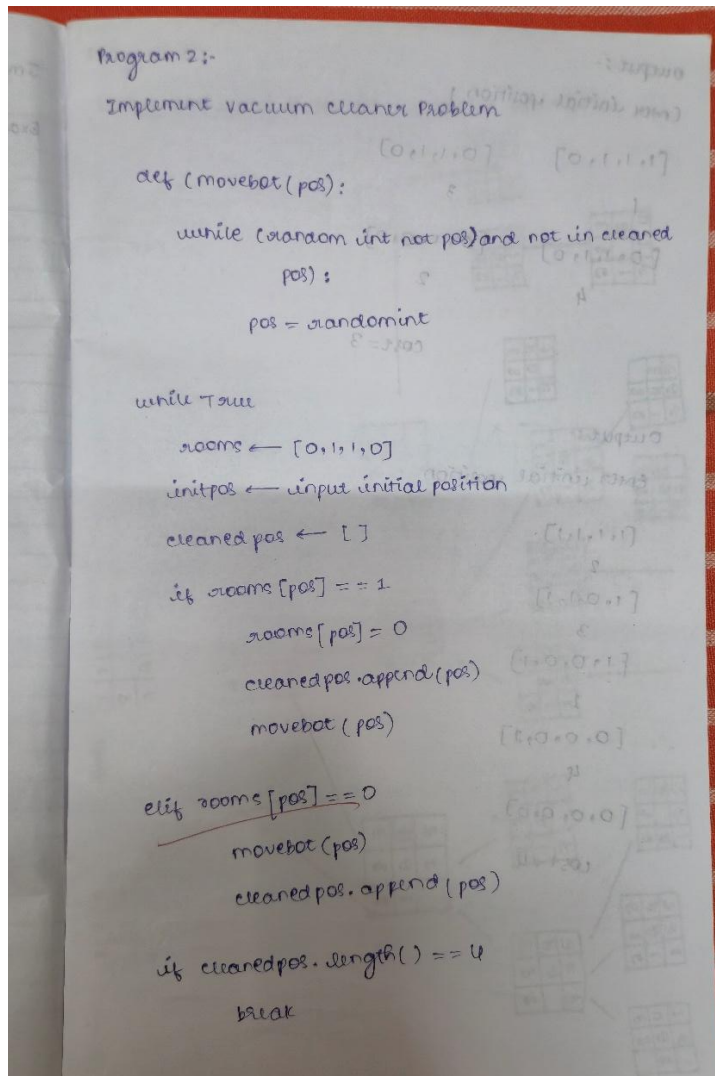 Program 2:-
Implement vacuum cleaner Problem
def (movebot (pos):
while (random int not pos) and not in cleaned
pos) :
pos = randomint
while True
rooms ← [0,1,1,0]
initpos ← input initial position
cleaned pos ← [ ]
if rooms [pos] == 1
rooms [pos] = 0
cleanedpos.append(pos)
movebot (pos)
elif rooms [pos] == 0
movebot (pos)
cleanedpos.append (pos)
if cleanedpos.length() == 4
break